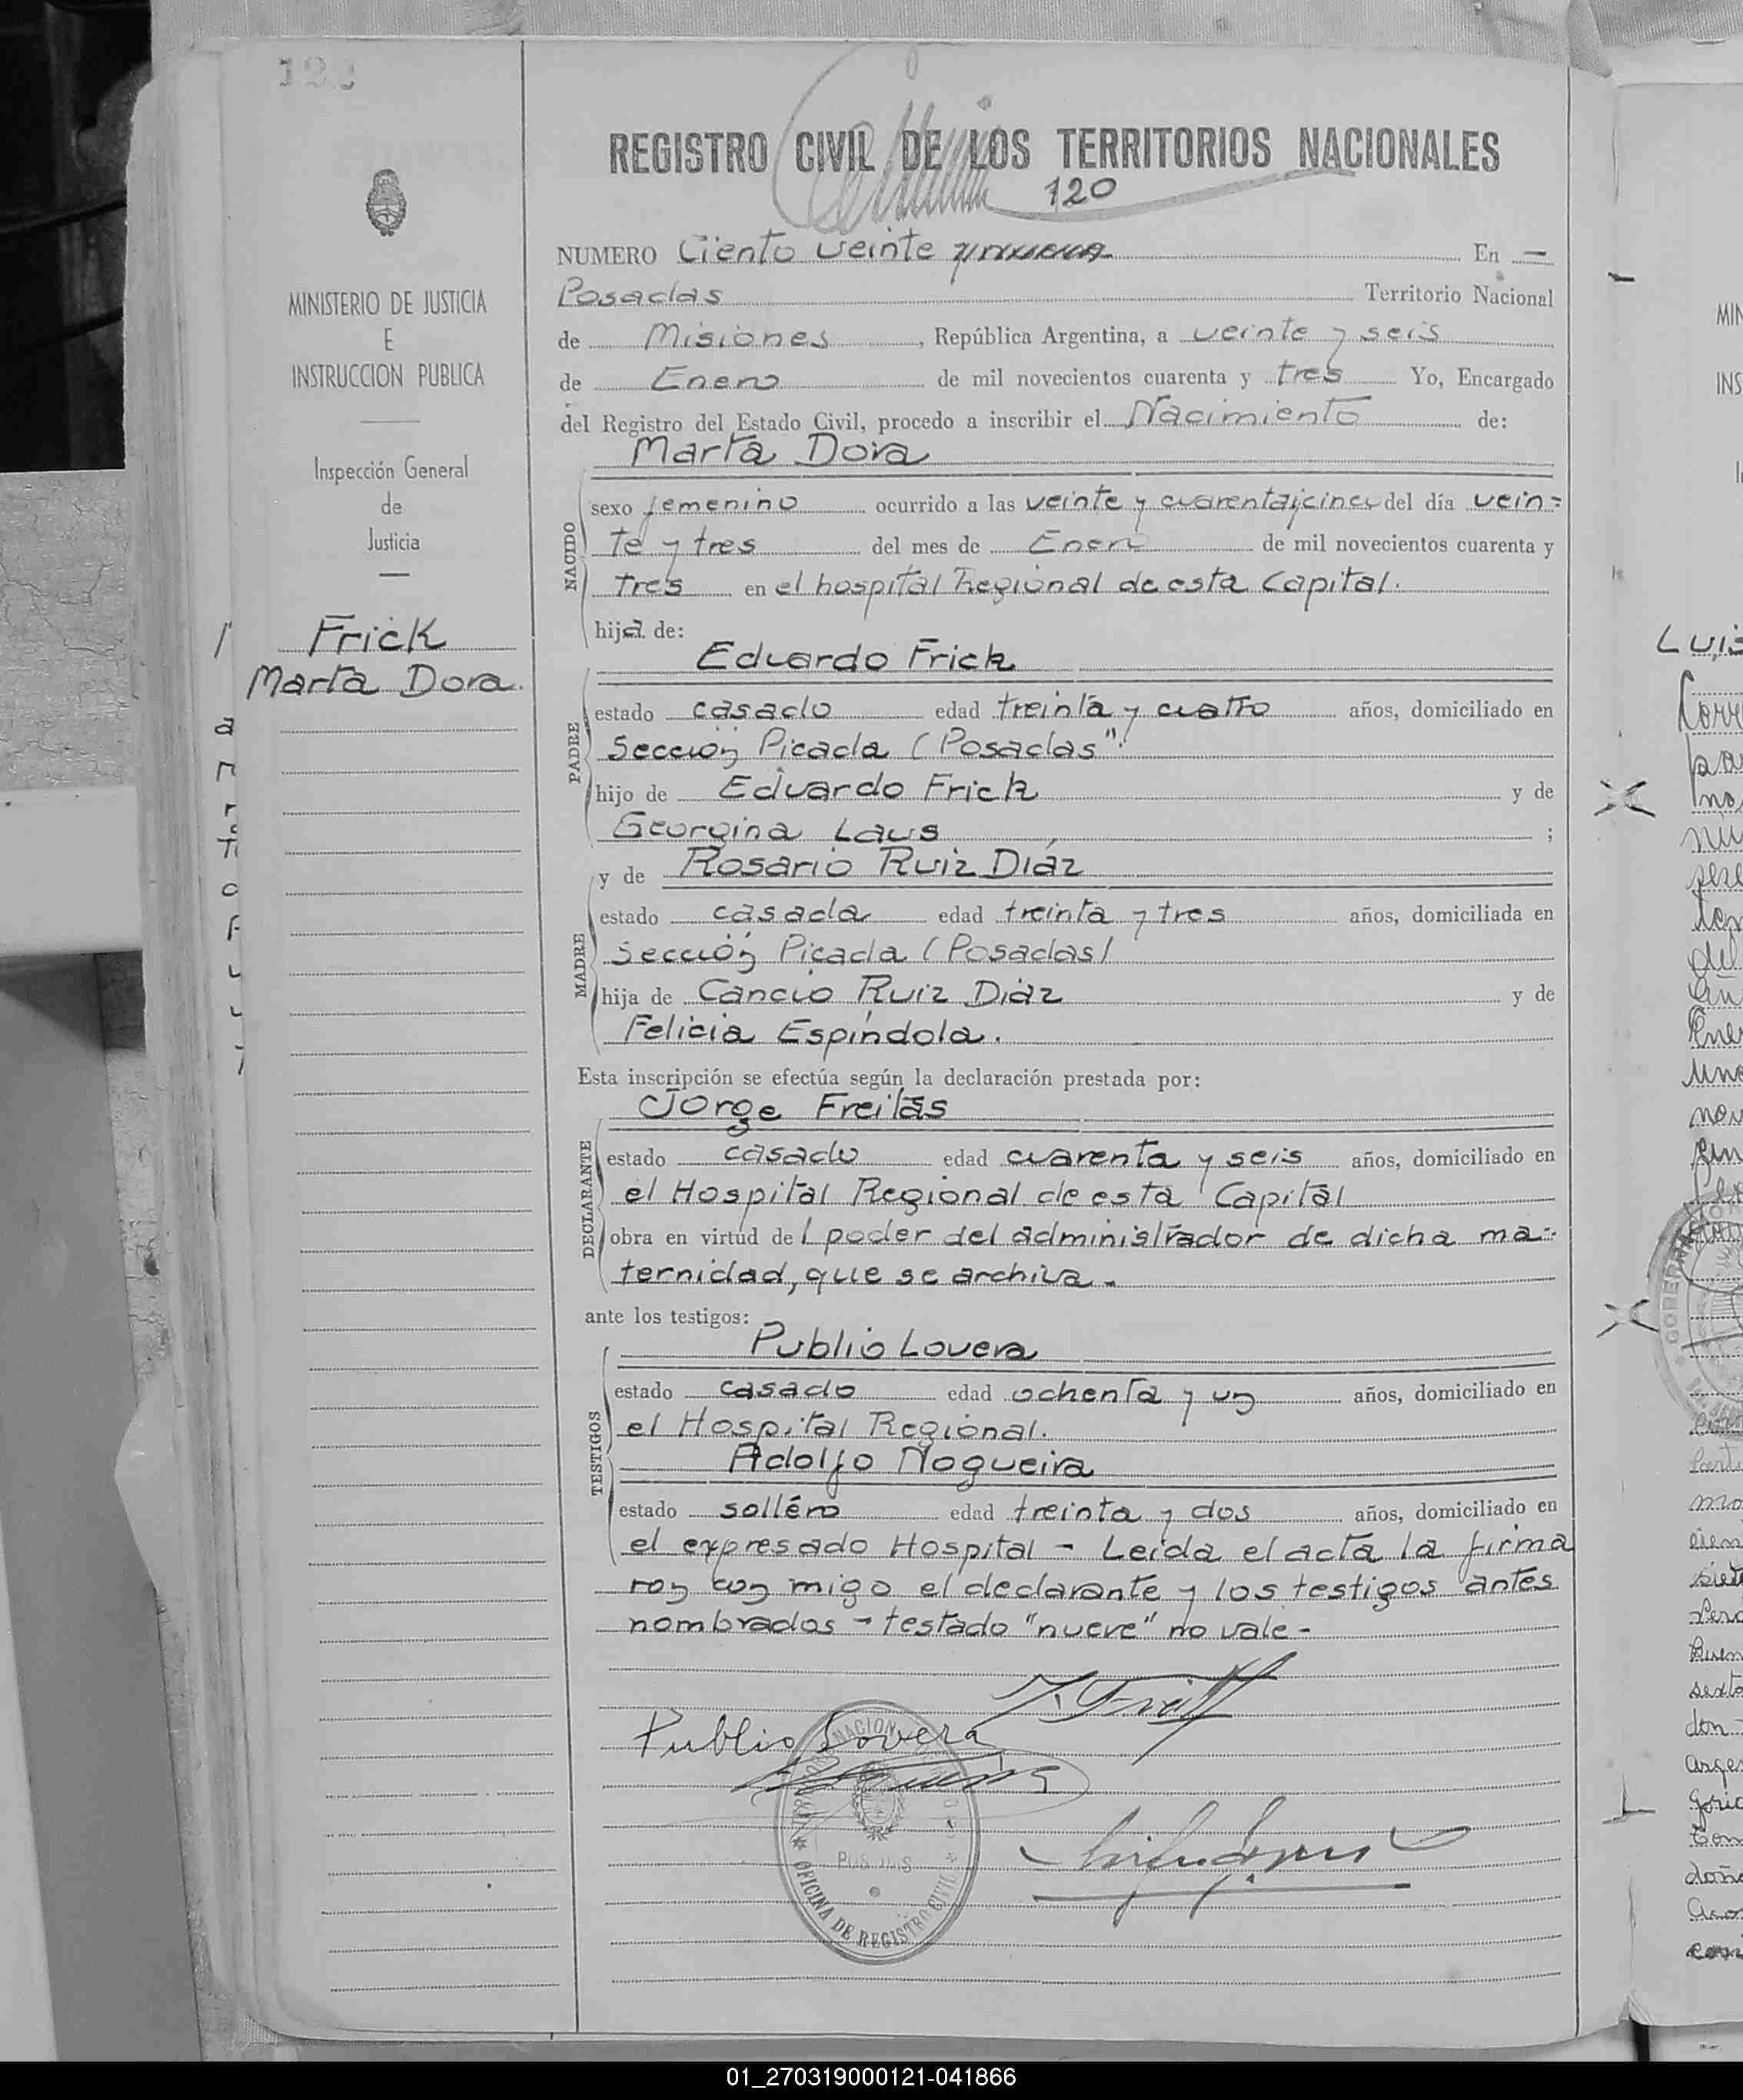 MINISTERIO DE JUSTICIA
E
INSTRUCCION PUBLICA
Inspección General
de
Justicia
Frick
Marta Dora.
REGISTRO CIVIL DE LOS TERRITORIOS NACIONALES
120
NUMERO Ciento veinte En —
Posadas Territorio Nacional
de Misiones, República Argentina, a veinte y seis
de Enero de mil novecientos cuarenta y tres Yo, Encargado
del Registro del Estado Civil, procedo a inscribir el Nacimiento de:
Marta Dora
NACIDO
sexo femenino ocurrido a las veinte y cuarentaicinco del día vein=
te y tres del mes de Enero de mil novecientos cuarenta y
tres en el hospital Regional de esta Capital.
hija de:
Eduardo Frick
PADRE
estado casado edad treinta y cuatro años, domiciliado en
Sección Picada (Posadas".
hijo de Eduardo Frick y de
Georgina Laus ;
y de Rosario Ruiz Diáz
MADRE
estado casada edad treinta y tres años, domiciliada en
Sección Picada (Posadas)
hija de Cancio Ruiz Diáz y de
Felicia Espíndola.
Esta inscripción se efectúa según la declaración prestada por:
Jorge Freitas
DECLARANTE
estado casado edad cuarenta y seis años, domiciliado en
el Hospital Regional de esta Capital
obra en virtud del poder del administrador de dicha ma-
ternidad, que se archiva.-
ante los testigos:
Publio Lovera
TESTIGOS
estado casado edad ochenta y un años, domiciliado en
el Hospital Regional.
Adolfo Nogueira
estado soltéro edad treinta y dos años, domiciliado en
el expresado Hospital - Leida el acta la firma
ron con migo el declarante y los testigos antes
nombrados - testado "nueve" no vale -
Publio Lovera
OFICINA DE REGISTRO CIVIL
POSADAS
01_270319000121-041866